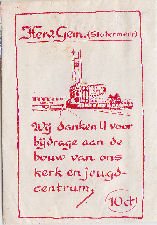 Herv. Gem. (Slotermeer)
Wij danken U voor
bijdrage aan de
bouw van ons
kerk en jeugd-
centrum,
10 ct